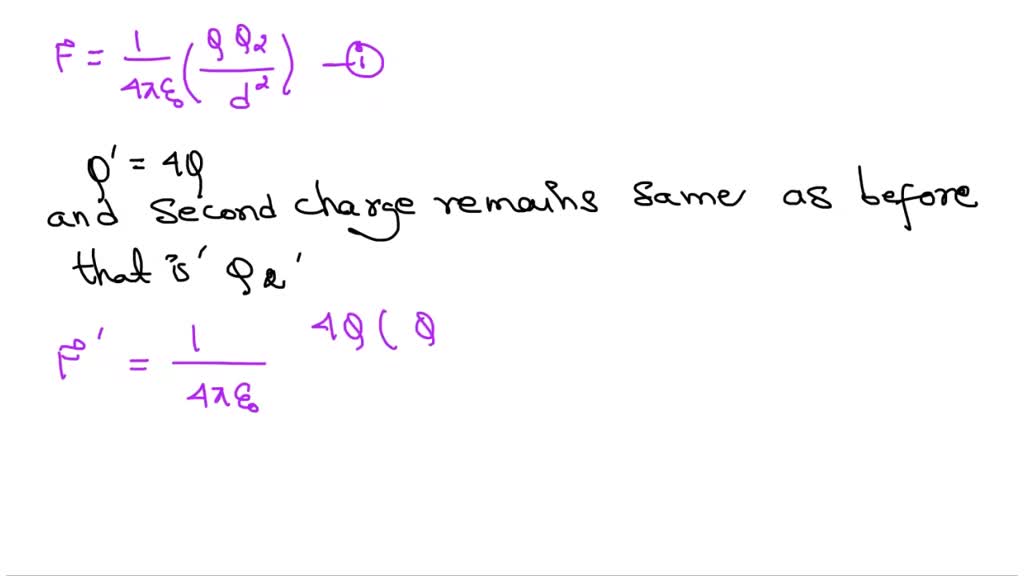 F = 1/4πε₀ (Q Q₂/d²) —①
Q' = 4Q
and second charge remains same as before
that is ' Q₂ '
F' = 1/4πε₀ 4Q ( Q